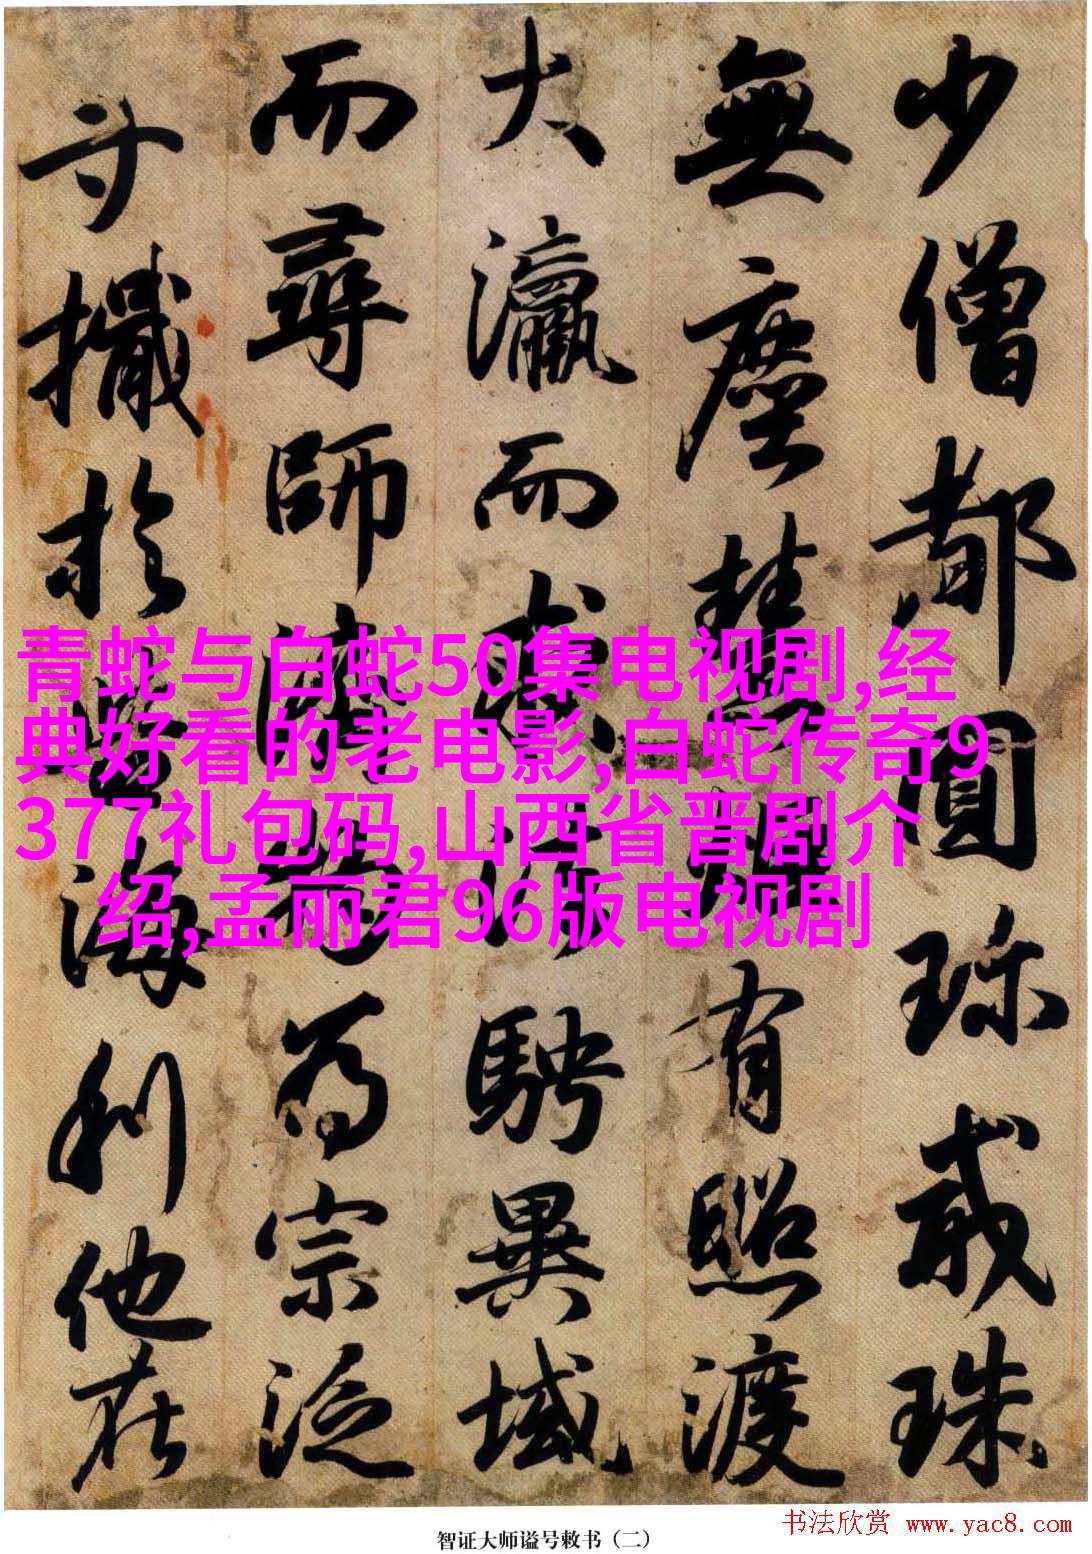 少僧都圓珍戒珠
無塵慧炬有照渡
大瀛而求法騁異域
而尋師濟物為宗泛
舟檝於海利他在
青蛇与白蛇50集电视剧,经
典好看的老电影,白蛇传奇9
377礼包码,山西省晋剧介
绍,孟丽君96版电视剧
智证大师谥号敕书（二）
书法欣赏 www.yac8.com